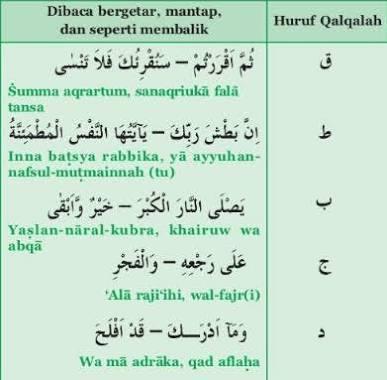 Dibaca bergetar, mantap,
dan seperti membalik
Huruf Qalqalah
ثُمَّ اَقْرَرْتُمْ – سَنُقْرِئُكَ فَلَا تَنْسٰى
ق
Śumma aqrartum, sanaqriukā falā
tansa
اِنَّ بَطْشَ رَبِّكَ – يٰٓاَيَّتُهَا النَّفْسُ الْمُطْمَئِنَّةُ
ط
Inna baṭsya rabbika, yā ayyuhan-
nafsul-muṭmainnah (tu)
يَصْلَى النَّارَ الْكُبْرَ – خَيْرٌ وَّاَبْقٰى
ب
Yaṣlan-nāral-kubra, khairuw wa
abqā
عَلٰى رَجْعِهٖ – وَالْفَجْرِ
ج
‘Alā raji‘ihi, wal-fajr(i)
وَمَآ اَدْرٰىكَ – قَدْ اَفْلَحَ
د
Wa mā adrāka, qad aflaḥa